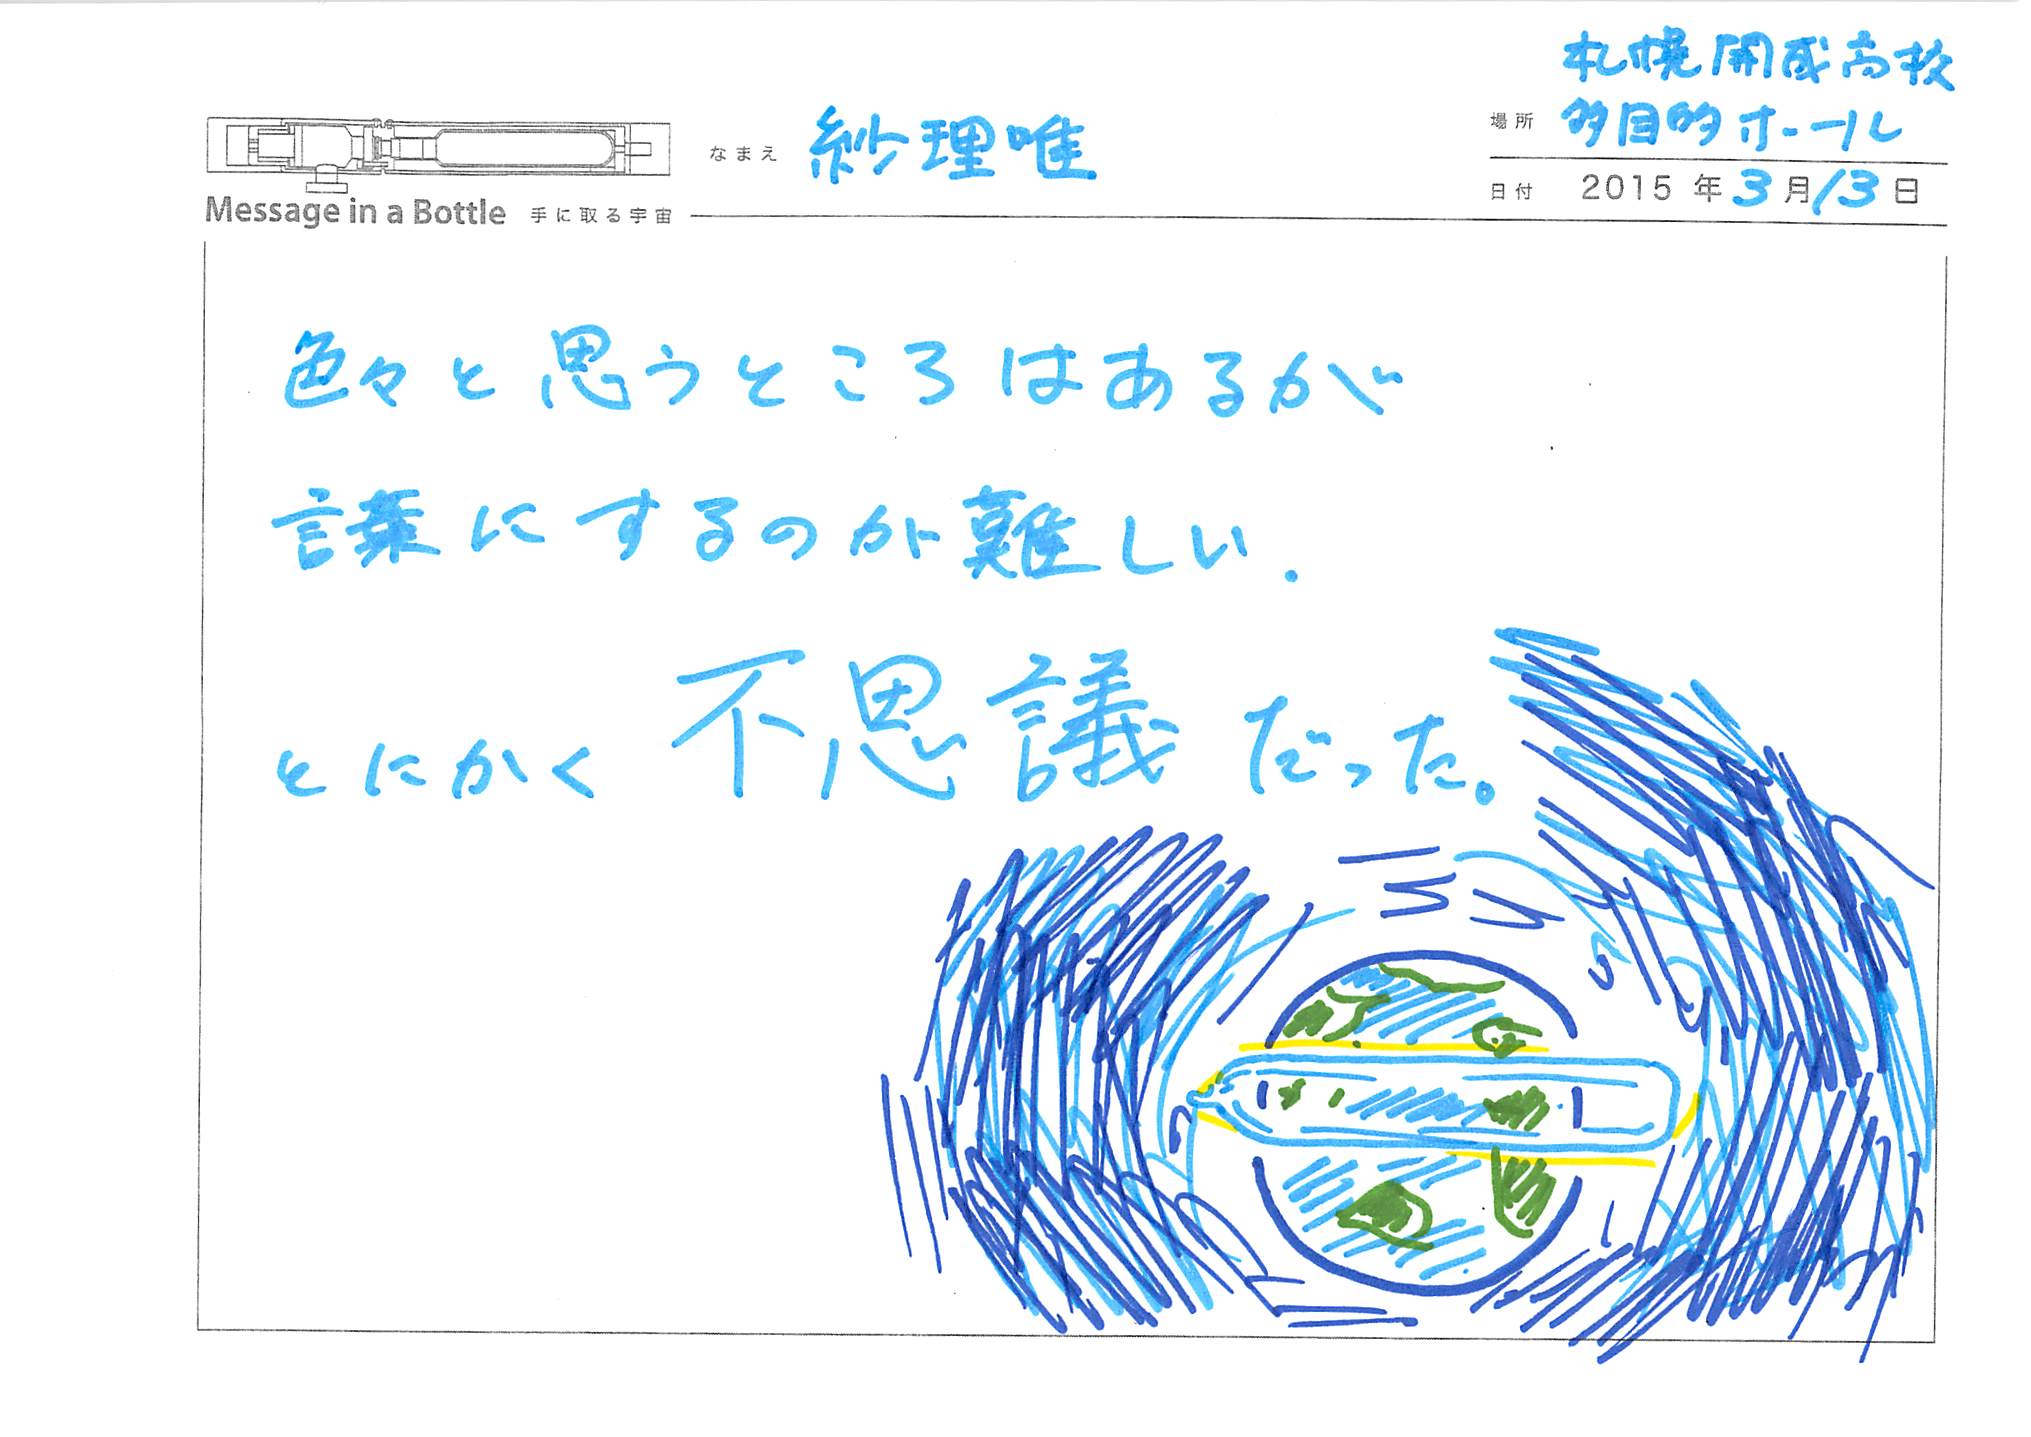 札幌開成高校
場所 多目的ホール
なまえ 紗理唯
日付 2015 年 3 月 13 日
Message in a Bottle 手に取る宇宙
色々と思うところはあるが
言葉にするのが難しい.
とにかく不思議だった。